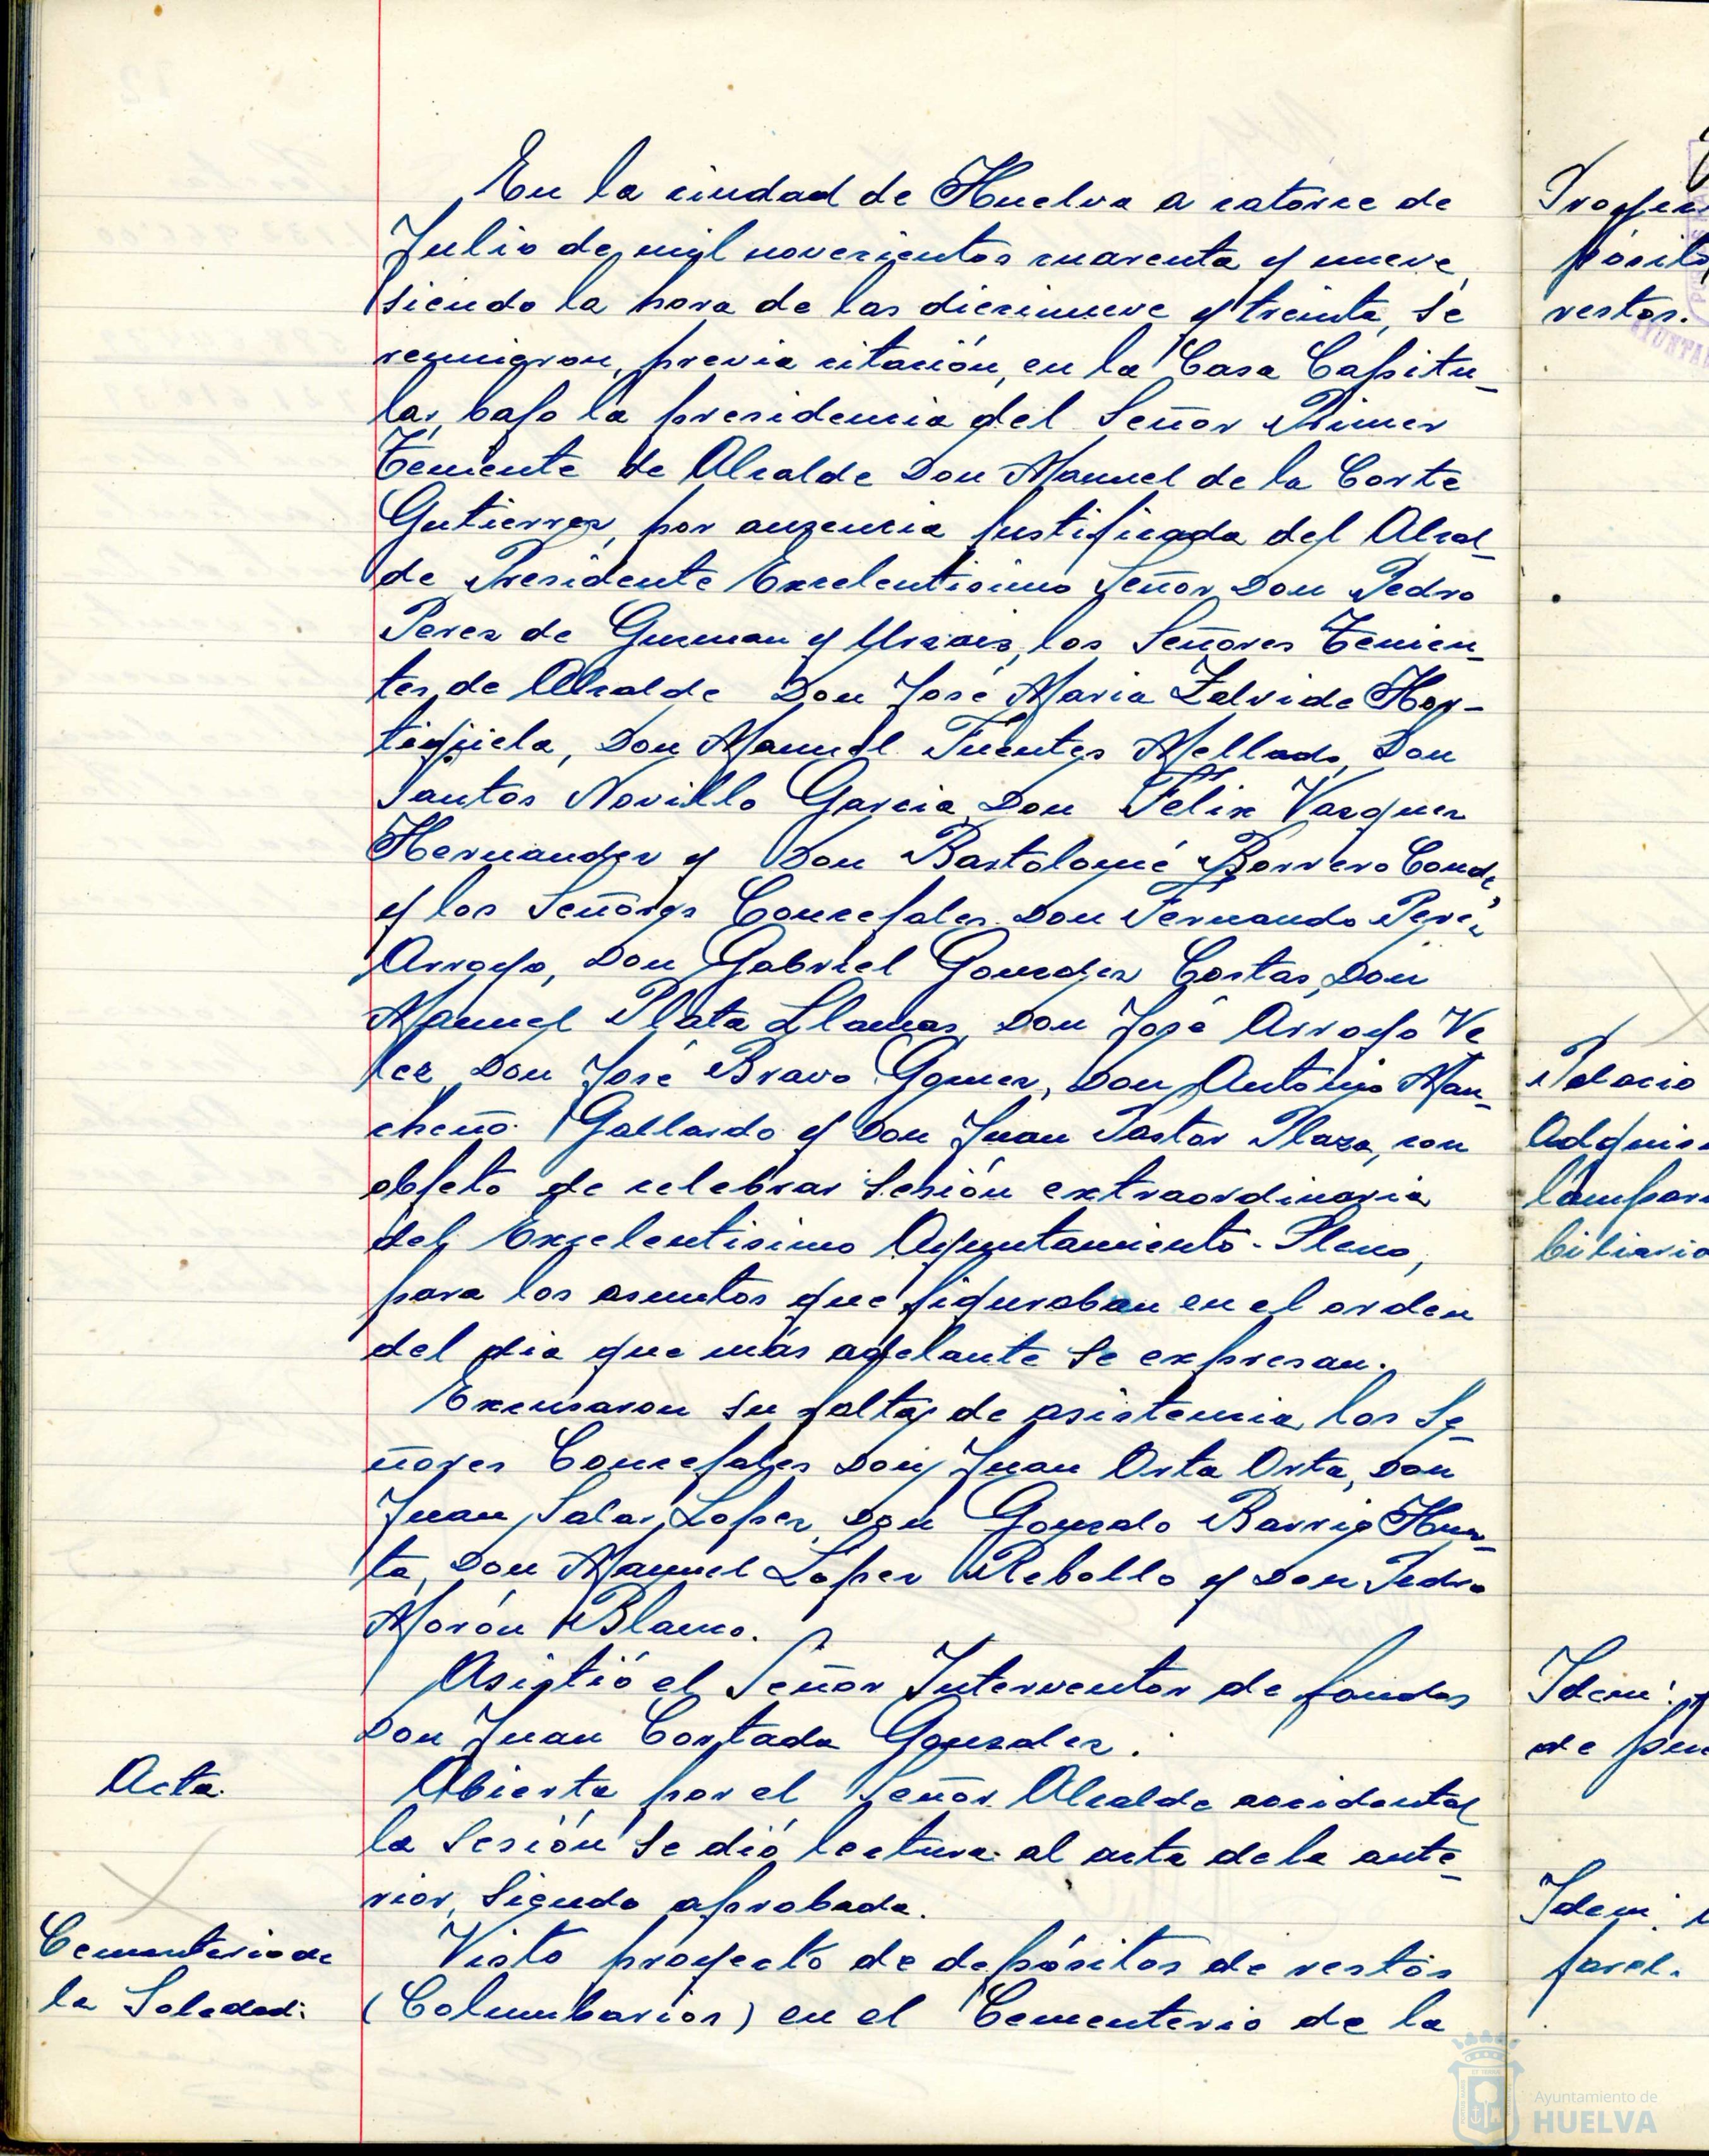 En la ciudad de Huelva a catorce de
Julio de mil novecientos cuarenta y nueve,
siendo la hora de las diecinueve y treinta, se
reunieron, previa citación, en la Casa Capitu-
lar, bajo la presidencia del Señor Primer
Teniente de Alcalde Don Manuel de la Corte
Gutierrez, por ausencia justificada del Alcal-
de Presidente Excelentisimo Señor Don Pedro
Perez de Guzman y Urzaiz, los Señores Tenien-
tes de Alcalde Don José Maria Zalvide Hor-
tigüela, Don Manuel Fuentes Mellado, Don
Santos Novillo Garcia, Don Felix Vazquez
Hernandez y Don Bartolomé Borrero Conde,
y los Señores Concejales Don Fernando Perez
Arroyo, Don Gabriel Gonzalez Costas, Don
Manuel Plata Llamas, Don José Arroyo Ve
lez, Don José Bravo Gomez, Don Antonio Man-
cheño Gallardo y Don Juan Pastor Plaza, con
objeto de celebrar sesión extraordinaria
del Excelentisimo Ayuntamiento-Pleno,
para los asuntos que figuraban en el orden
del dia que más adelante se expresan.
Excusaron su falta de asistencia los Se-
ñores Concejales Don Juan Orta Orta, Don
Juan Salas Lopez, Don Gonzalo Barrig Huer-
ta, Don Manuel López Rebollo y Don Pedro
Morón Blanco.
Asistió el Señor Interventor de fondos
Don Juan Cortada Gonzalez.
Acta. Abierta por el Señor Alcalde accidental
la sesión se dió lectura al acta de la ante-
rior, siendo aprobada.
Cementerio de Visto proyecto de depósitos de restos
la Soledad: (Columbarios) en el Cementerio de la
pósito
restos.
Palacio
Idem:
de
Idem.
Ayuntamiento de
HUELVA